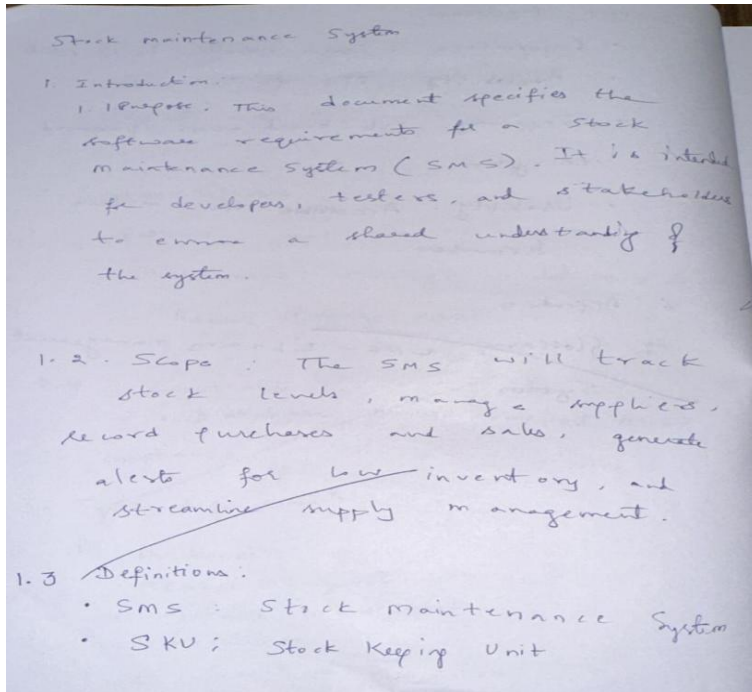 Stock maintenance System
1. Introduction.
1.1 Purpose. This document specifies the
software requirements for a Stock
maintenance System (SMS). It is intended
for developers, testers, and stakeholders
to ensure a shared understanding of
the system.
1.2. Scope : The SMS will track
stock levels, manage suppliers,
record purchases and sales, generate
alerts for low inventory, and
streamline supply management.
1.3 Definitions:
• SMS : Stock Maintenance System
• SKU : Stock Keeping Unit